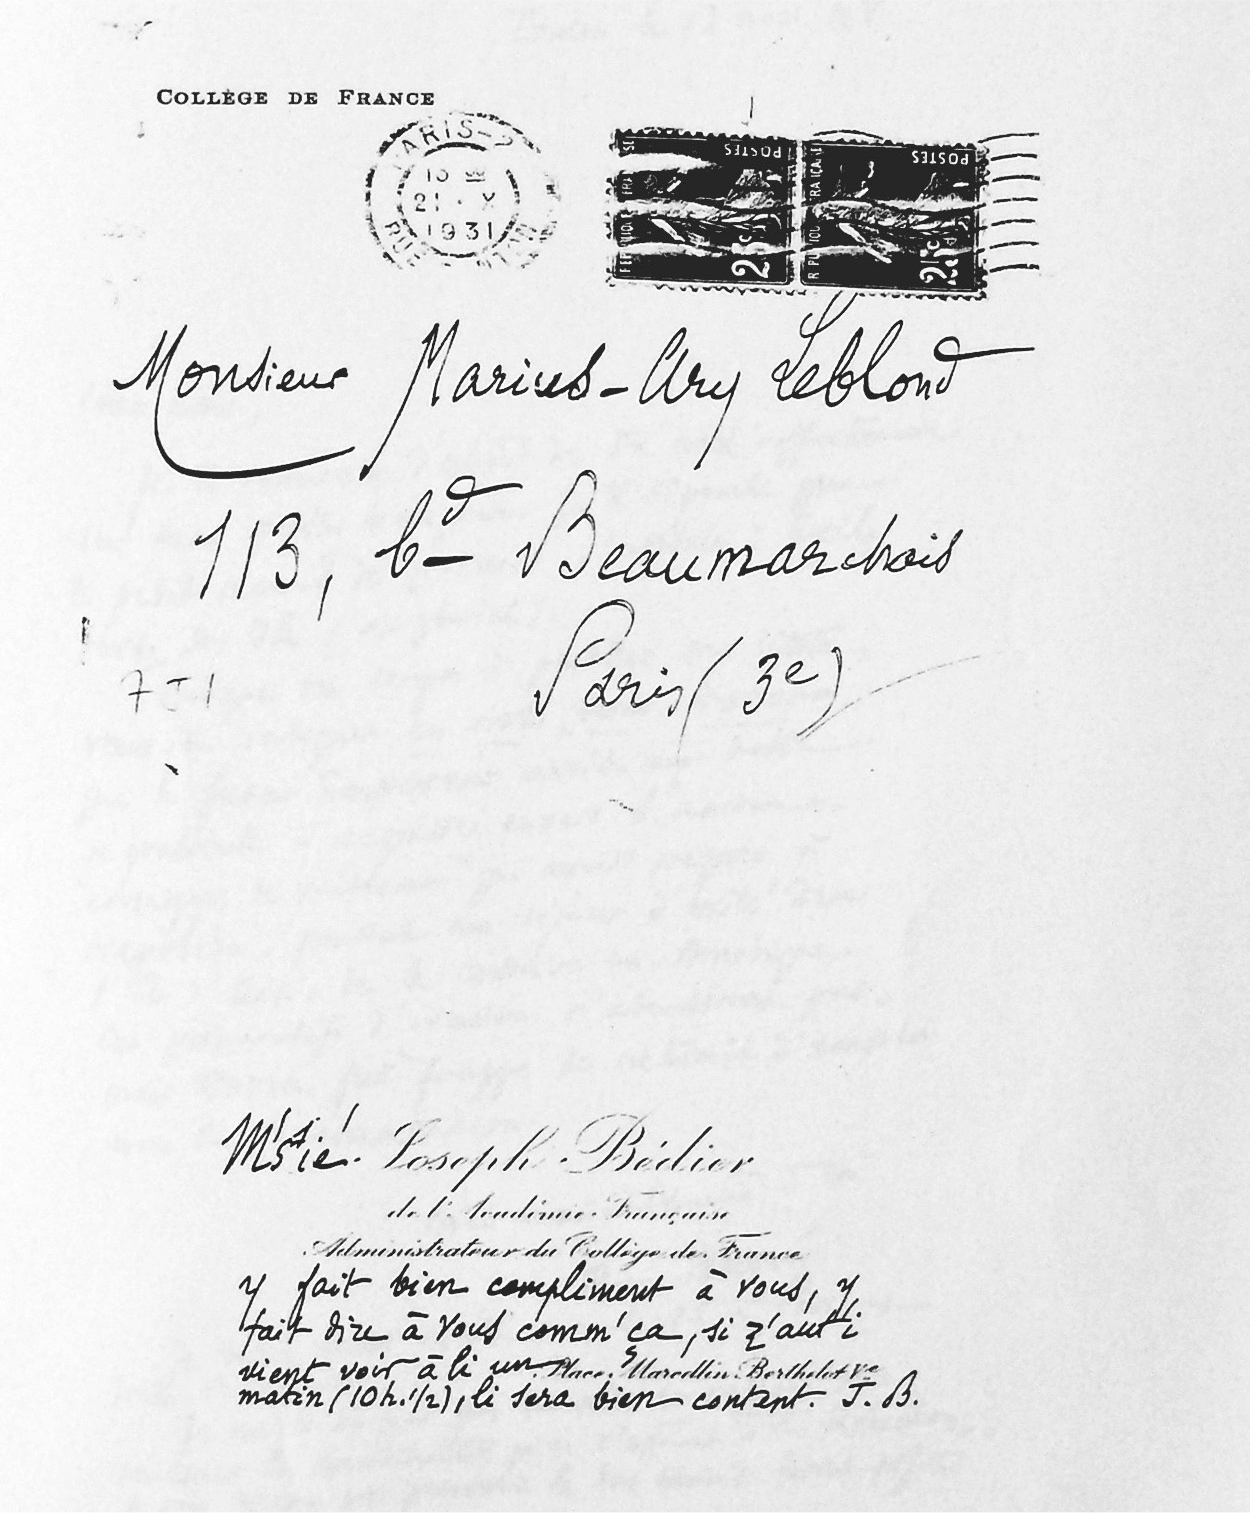 COLLÈGE DE FRANCE
PARIS-5
21 · X
1931
POSTES
POSTES
25c
25c
Monsieur Marius-Ary Leblond
113, bd Beaumarchais
Paris (3e)
7J1
M'sié. Joseph Bédier
de l'Académie Française
Administrateur du Collège de France
y fait bien compliment à vous, y
fait dire à vous comm' ça, si z'aut' i
vient voir à li un Place Marcellin Berthelot Ve
matin (10h. 1/2), li sera bien content. J. B.